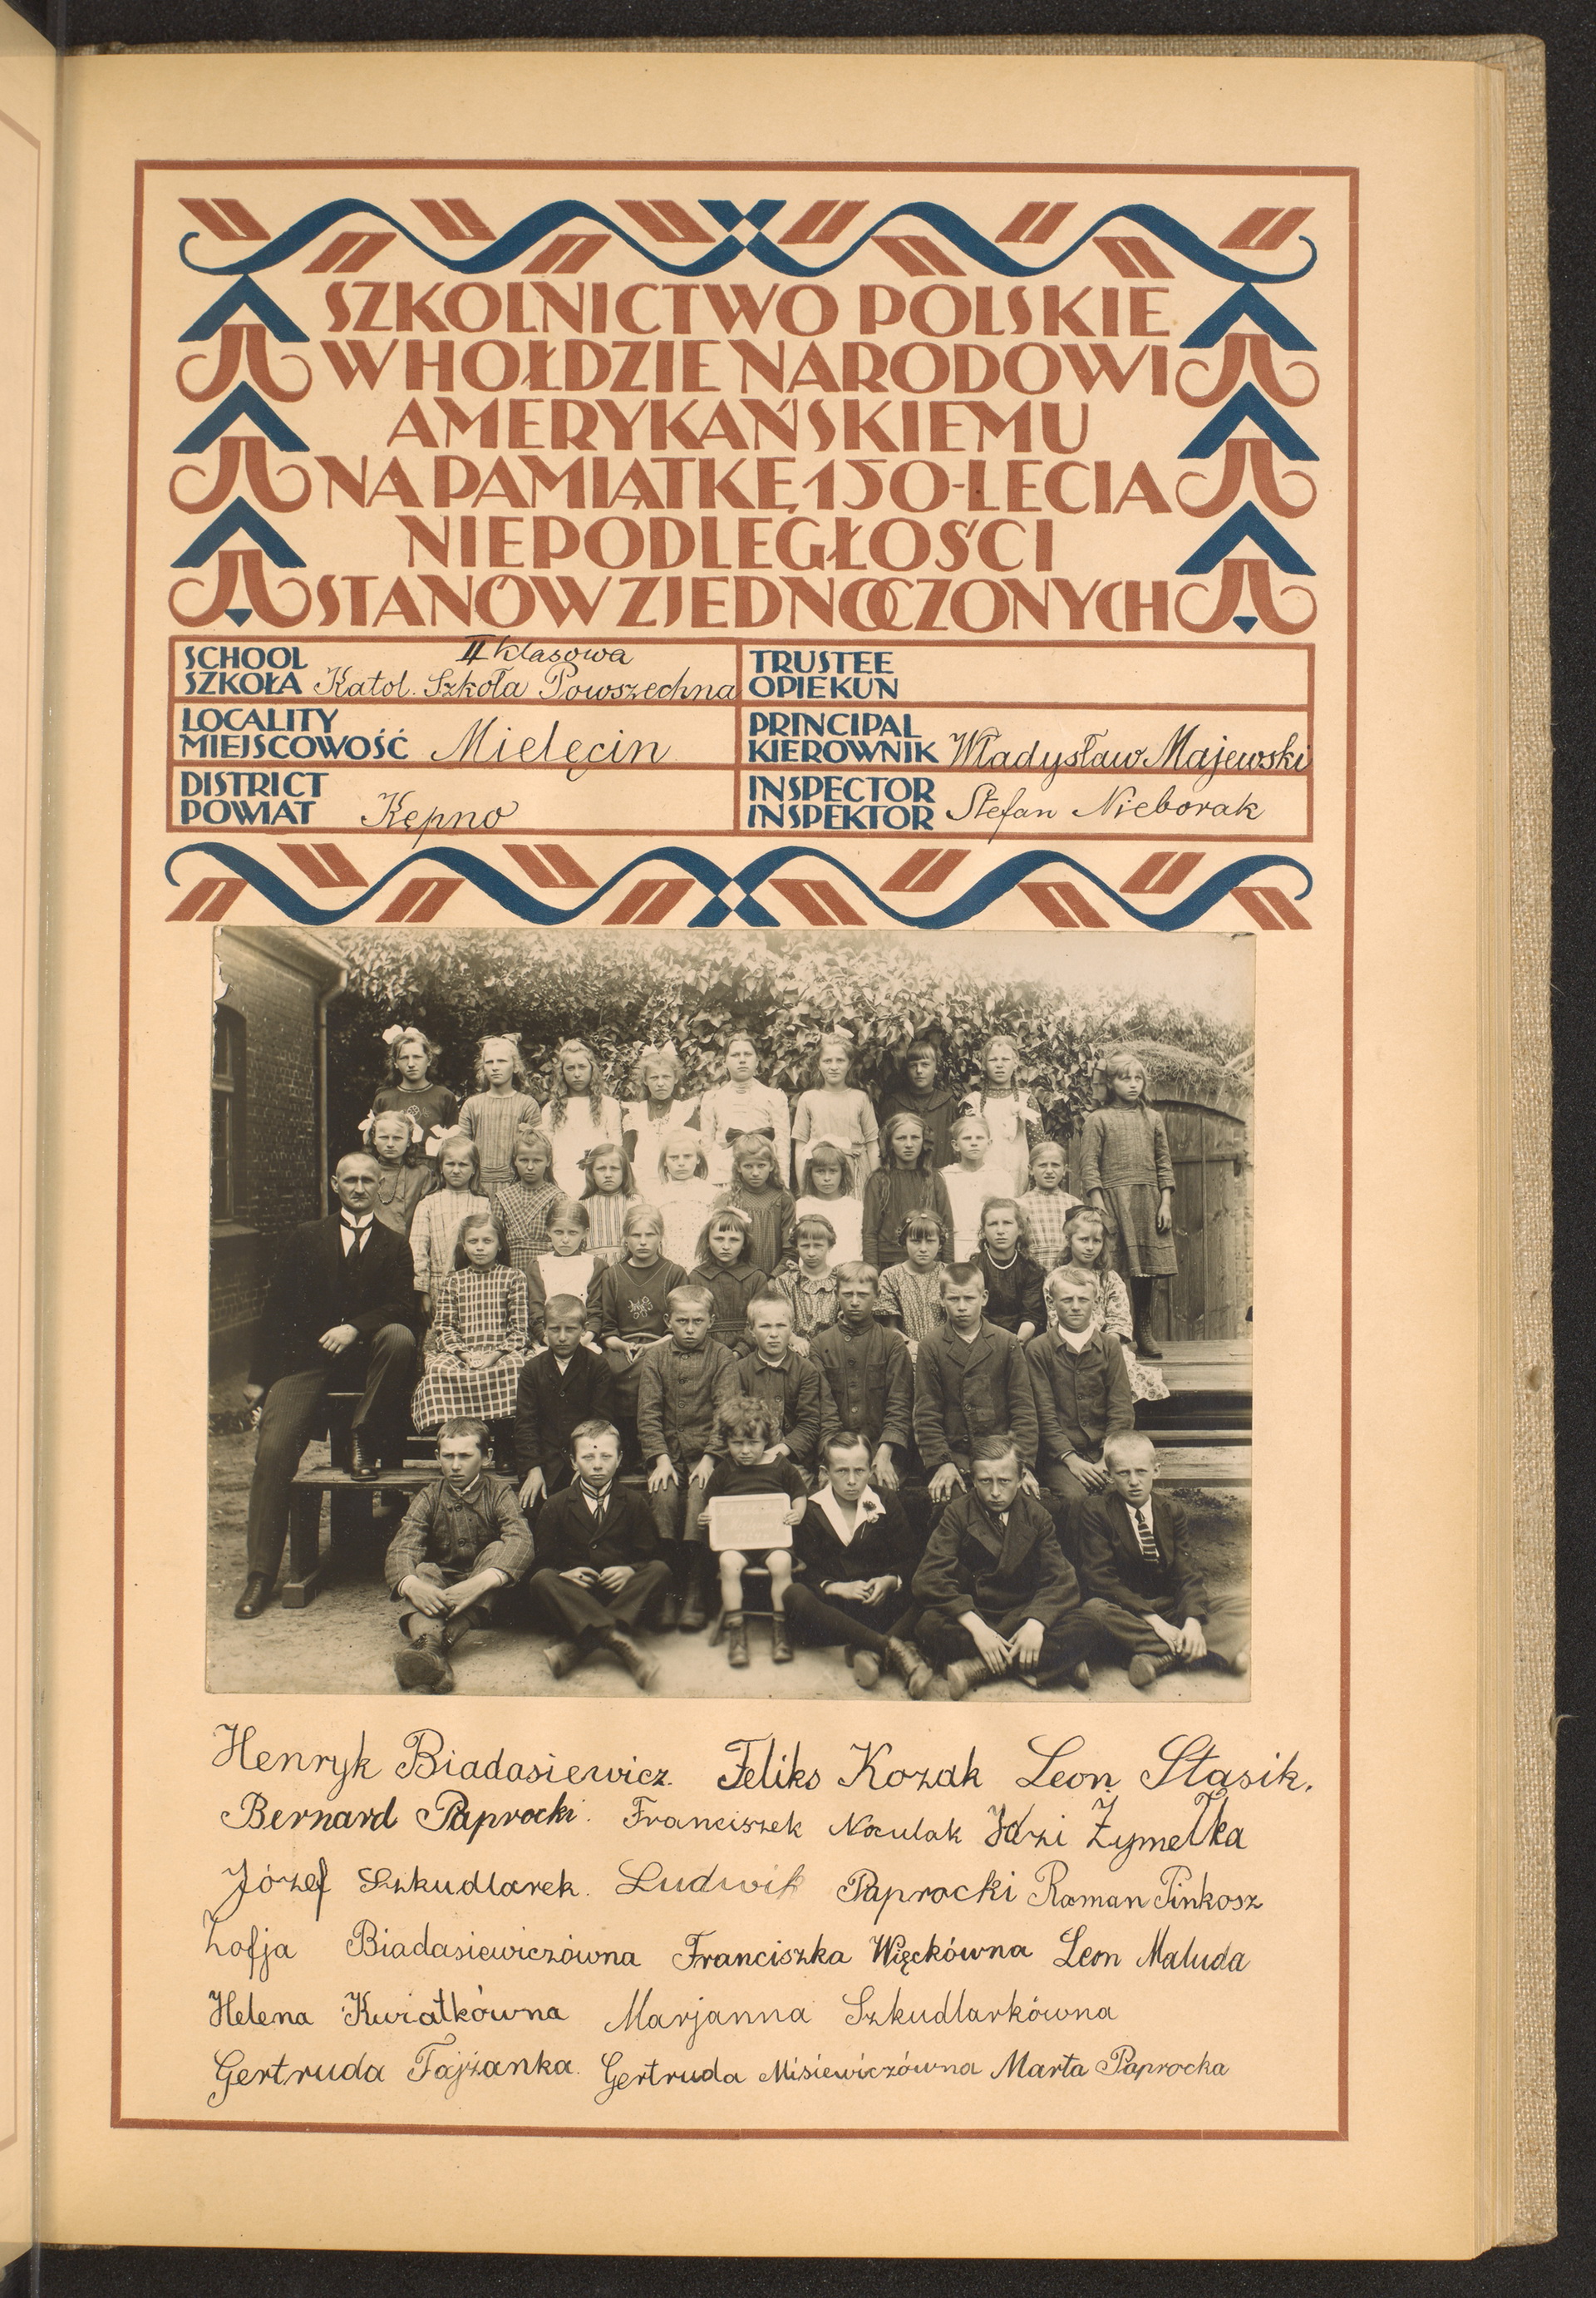 SZKOLNICTWO POLSKIE
W HOŁDZIE NARODOWI
AMERYKAŃSKIEMU
NA PAMIĄTKĘ 150-LECIA
NIEPODLEGŁOŚCI
STANÓW ZJEDNOCZONYCH
SCHOOL
SZKOŁA
II klasowa
Katol. Szkoła Powszechna
TRUSTEE
OPIEKUN
LOCALITY
MIEJSCOWOŚĆ Mielęcin
PRINCIPAL
KIEROWNIK Władysław Majewski
DISTRICT
POWIAT Kępno
INSPECTOR
INSPEKTOR Stefan Nieborak
Henryk Biadasiewicz. Feliks Kozak Leon Stasik.
Bernard Paprocki. Franciszek Noculak Idzi Żymełka
Józef Szkudlarek. Ludwik Paprocki Roman Pinkosz
Zofja Biadasiewiczówna Franciszka Więckówna Leon Maluda
Helena Kwiatkówna Marjanna Szkudlarkówna
Gertruda Fajżanka. Gertruda Misiewiczówna Marta Paprocka